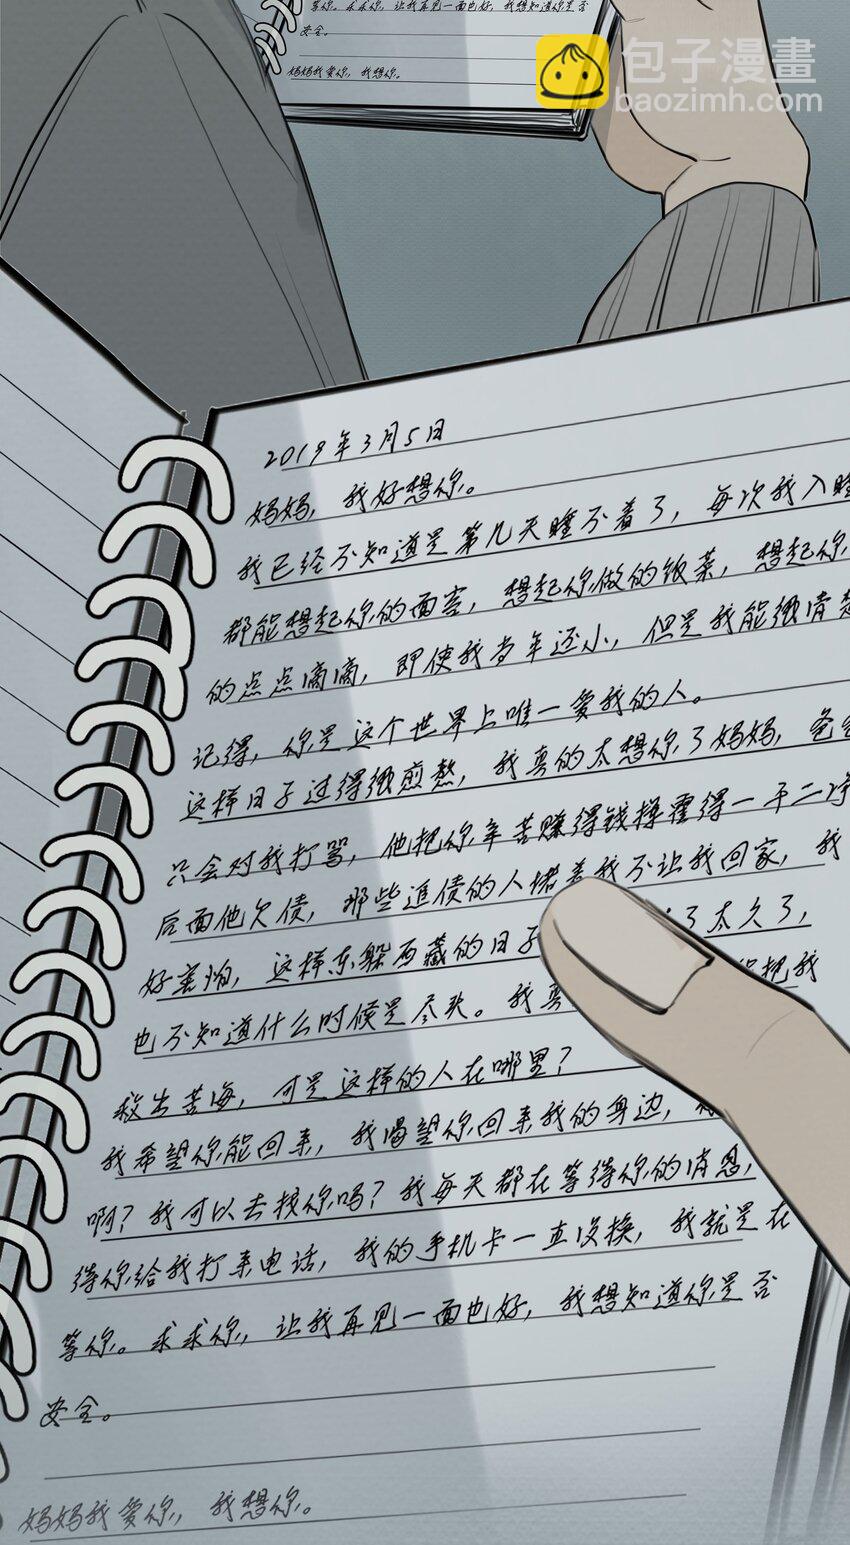 等你。求求你，让我再见一面也好，我想知道你是否
安全。
妈妈我爱你，我想你。
包子漫畫
baozimh.com
2019年3月5日
妈妈，我好想你。
我已经不知道是第几天睡不着了，每次我入睡
都能想起你的面容，想起你做的饭菜，想起你
的点点滴滴，即使我当年还小，但是我能很清楚
记得，你是这个世界上唯一爱我的人。
这样日子过得很煎熬，我真的太想你了妈妈，爸爸
只会对我打骂，他把你辛苦赚得钱挥霍得一干二净
后面他欠债，那些追债的人堵着我不让我回家，我
好害怕，这样东躲西藏的日子 了太久了，
也不知道什么时候是尽头。我真 把我
救出苦海，可是这样的人在哪里？
我希望你能回来，我渴望你回来我的身边，
啊？我可以去找你吗？我每天都在等待你的消息，
待你给我打来电话，我的手机卡一直没换，我就是在
等你。求求你，让我再见一面也好，我想知道你是否
安全。
妈妈我爱你，我想你。